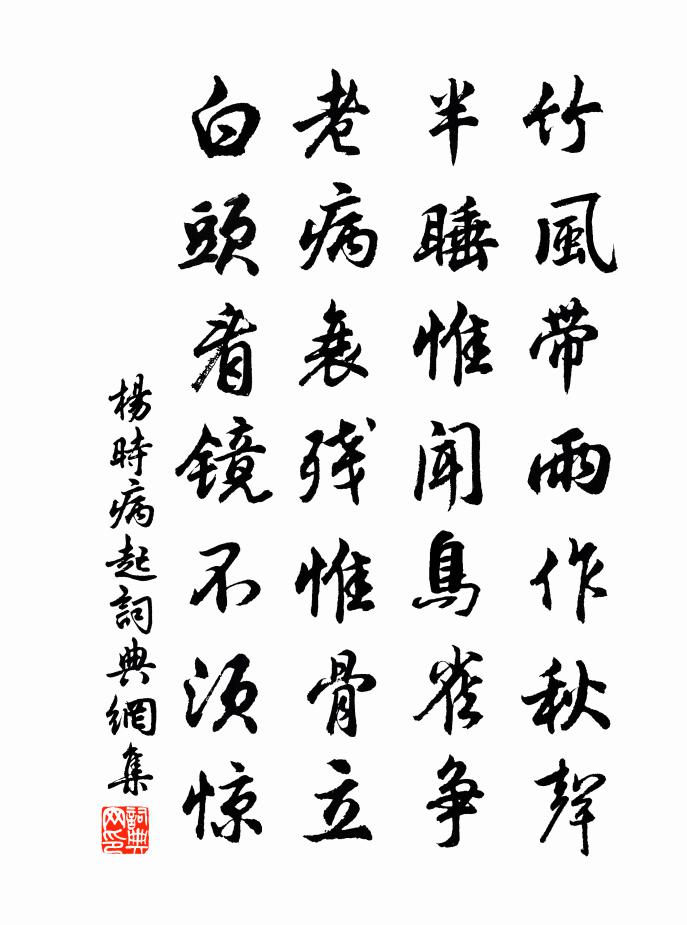 竹風帶雨作秋聲
半睡惟聞鳥雀爭
老病衰殘惟骨立
白頭看鏡不須惊
楊時病起詞典網集
詞典网印